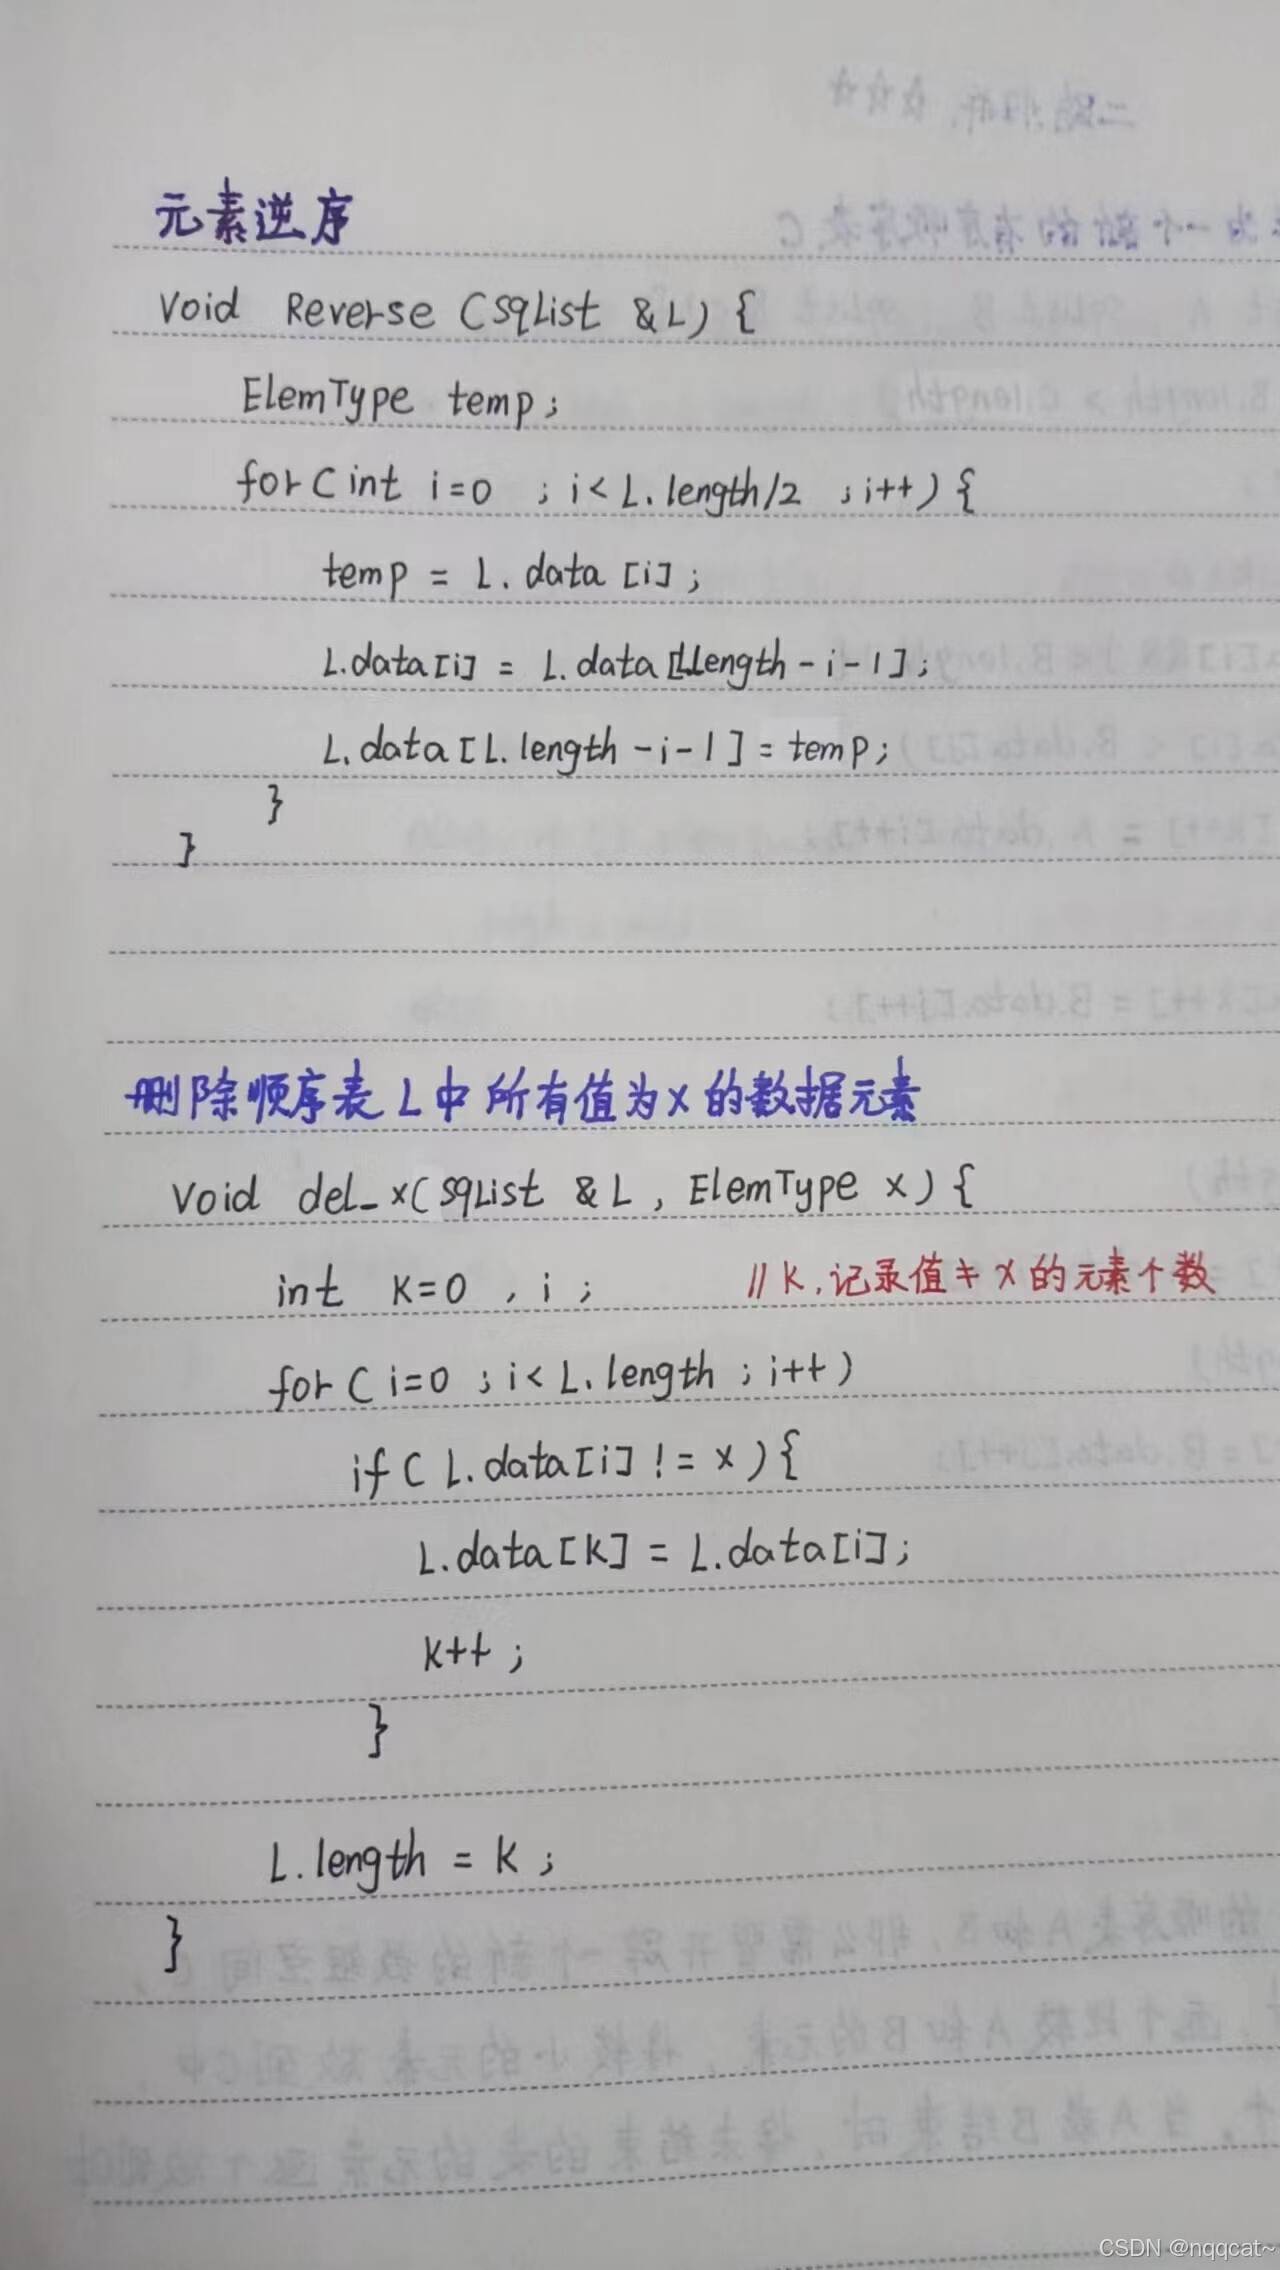 元素逆序
Void Reverse (SqList &L) {
ElemType temp;
for( int i=0 ; i< L.length/2 ; i++) {
temp = L.data[i];
L.data[i] = L.data[L.length-i-1];
L.data[L.length-i-1] = temp;
}
}
删除顺序表L中所有值为x的数据元素
Void del_x( SqList &L , ElemType x) {
int k=0 , i ; // k,记录值≠x的元素个数
for( i=0 ; i< L.length ; i++)
if( L.data[i] != x ) {
L.data[k] = L.data[i];
k++ ;
}
L.length = k ;
}
CSDN @nqqcat~